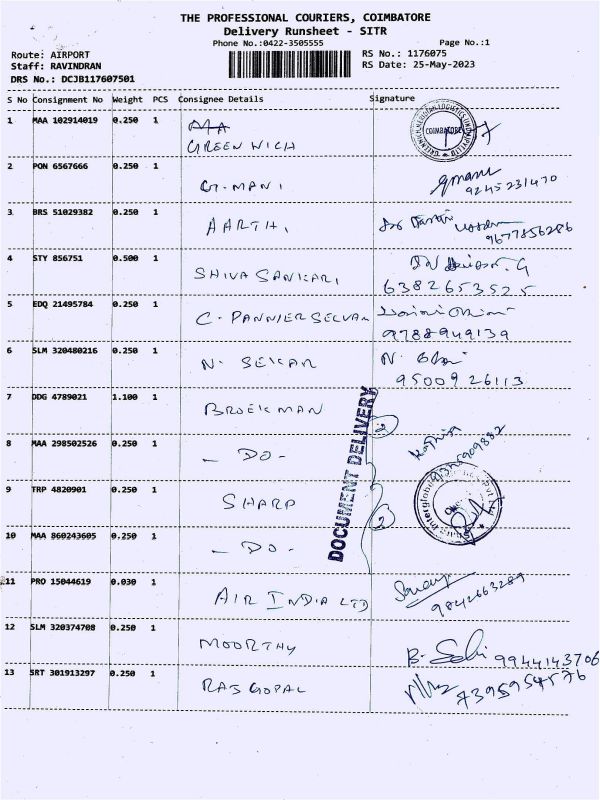 THE PROFESSIONAL COURIERS, COIMBATORE
Delivery Runsheet - SITR
Phone No.:0422-3505555 Page No.:1
Route: AIRPORT RS No.: 1176075
Staff: RAVINDRAN RS Date: 25-May-2023
DRS No.: DCJB117607501
S No Consignment No Weight PCS Consignee Details Signature
1 MAA 102914019 0.250 1 GREENWICH
COIMBATORE
2 PON 6567666 0.250 1 G. MANI
9245231470
3 BRS 51029382 0.250 1 AARTHI
9677856286
4 STY 856751 0.500 1 SHIVA SANKARI
6382653525
5 EDQ 21495784 0.250 1 C. PANNIER SELVAM
9788949139
6 SLM 320480216 0.250 1 N. SEKAR
9500926113
7 DDG 4789021 1.100 1 BROEKMAN
2
8 MAA 298502526 0.250 1 - DO -
DOCUMENT DELIVERY
9 TRP 4820901 0.250 1 SHARP
2
10 MAA 860243605 0.250 1 - DO -
11 PRO 15044619 0.030 1 AIR INDIA LTD
9842663289
12 SLM 320374708 0.250 1 MOORTHY
9944143706
13 SRT 301913297 0.250 1 RAJGOPAL
7395954576